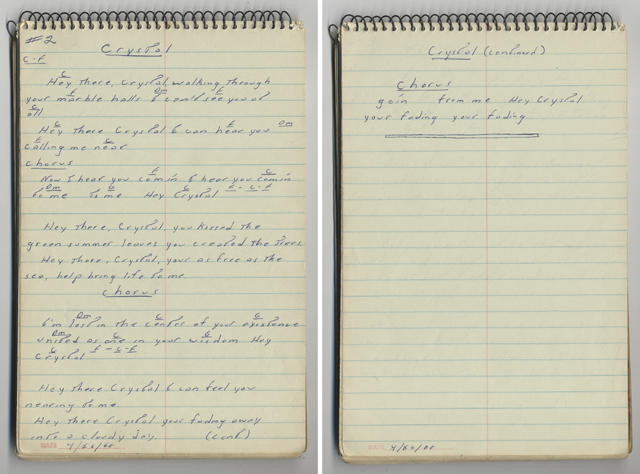 #2
Crystal
C-F
C
Hey There, Crystal, walking Through
F Dm E
your marble halls I can't see you at
C
all
C F Dm
Hey There Crystal I can hear you
E C
calling me near
chorus
F C
Now I hear you comin I hear you comin
Dm G C F - C-F
to me To me Hey Crystal
Hey There, Crystal, you kissed the
green summer leaves you created the Trees
Hey There, Crystal, your as free as the
sea, help bring life To me
chorus
Dm C G
I'm lost in the center of your existence
Dm C G
united as one in your wisdom Hey
C F - C-F
Crystal
Hey There Crystal I can feel you
nearing To me
Hey There Crystal your fading away
into a cloudy day. (cont)
DATE
Crystal (continued)
chorus
goin from me Hey Crystal
your fading your fading
DATE